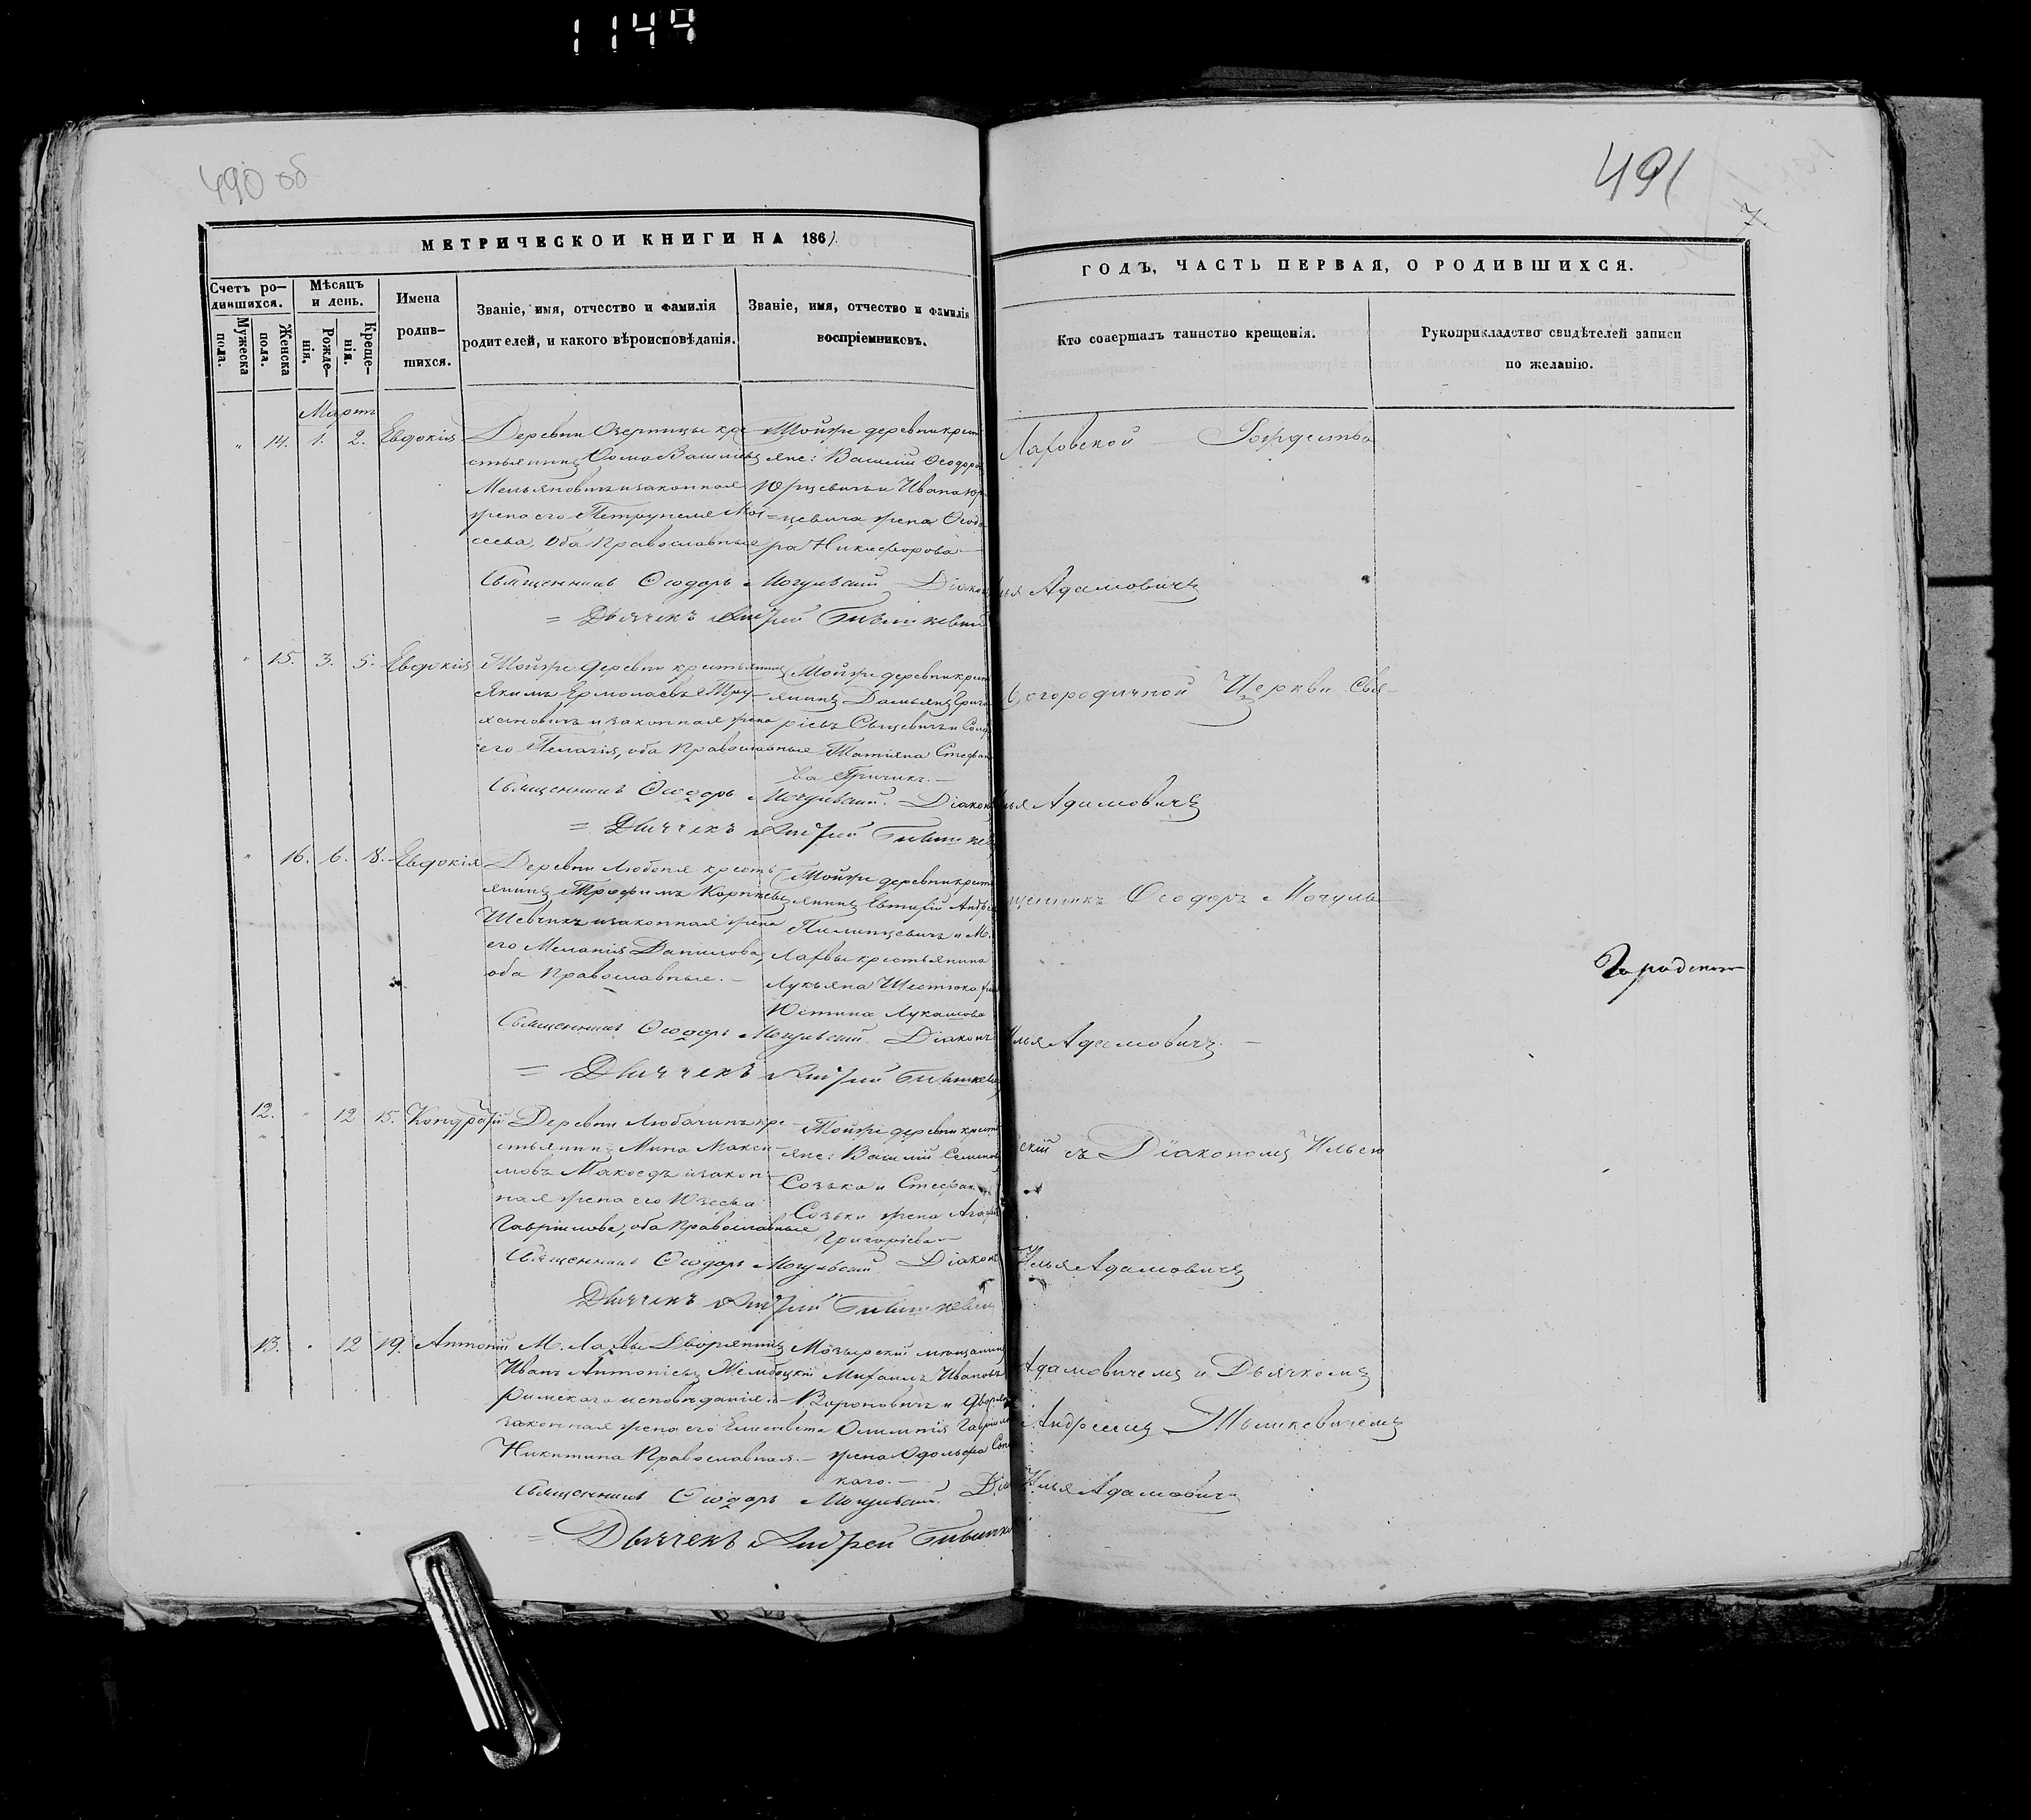 1149
490 об
491
7
МЕТРИЧЕСКОЙ КНИГИ НА 186
ГОДЪ, ЧАСТЬ ПЕРВАЯ, О РОДИВШИХСЯ.
Счетъ ро-
дившихся.
Мужеска
пола.
Женска
пола.
Мѣсяцъ
и день.
Рожде-
нія.
Креще-
нія.
Имена
родив-
шихся.
Званіе, имя, отчество и фамилія
родителей, и какого вѣроисповѣданія.
Званіе, имя, отчество и фамилія
воспріемниковъ.
Кто совершалъ таинство крещенія.
Рукоприкладство свидѣтелей записи
по желанію.
Мартъ
" 14. 1. 2. Евдокія
Деревни Озерницы кре-
стьянинъ Ѳома Василіевъ
Мельяновичъ и законная
жена его Петрунеля Мои
сеева, оба Православные
Тойже деревни крест
яне: Василій Ѳеодоро
Юрцевичъ и Ивана Юр
=цевича жена Ѳеодо
ра Никифорова
Лаховской Рождество
Священникъ Ѳеодоръ Мочульскій Діаконъ Илья Адамовичъ
= Дьячекъ Андрей Тышкевичъ
" 15. 3. 5. Евдокія
Тойже деревни крестьянинъ
Якимъ Ермолаевъ Тру-
хановичъ и законная жена
его Пелагія, оба Православные
Тойже деревни крест
янинъ Дамьянъ Григо
ріевъ Сыцевичъ и
Татіяна Стефано
ва Гричикъ.
Богородичной Церкви Свя-
Священникъ Ѳеодоръ Мочульскій. Діаконъ Илья Адамовичъ
= Дьячекъ Андрей Тышкев
" 16. 6. 8. Евдокія
Деревни Любоня кресть
янинъ Трофимъ Корніевъ
Шевчикъ и законная жена
его Меланія Данилова,
оба Православные.
Тойже деревни крест
янинъ Евтихій Андре
Пилипцевичъ и М.
Лахвы крестьянина
Лукьяна Шестюка
Юстина Лукашова
щенникъ Ѳеодоръ Мочуль-
Священникъ Ѳеодоръ Мочульскій. Діаконъ Илья Адамовичъ.
= Дьячекъ Андрей Тышкевич
12. " 12 15. Кондратій
Деревни Любачинъ кре-
стьянинъ Мина Макси-
мовъ Макоедъ и закон-
ная жена его Юзефа
Гавріилова, оба Православные
Тойже деревни крест
яне: Василій Семенов
Созько и Стефан
Созьки жена Агафія
Григоріева
скій съ Діакономъ Ильею
Священникъ Ѳеодоръ Мочульскій. Діаконъ Илья Адамовичъ
Дьячекъ Андрей Тышкевич
13. " 12 19. Антоній
М. Лахвы Дворянинъ
Иванъ Антоніевъ
Римскаго исповѣданія и
законная жена его Елисавета
Никитина Православная.
Мозырскій мѣщанинъ
Михаилъ Ивановъ
Вороновичъ и дворян
Олимпія Гавріил
жена Адольфа
каго.
Адамовичемъ и Дьячкомъ
Андреемъ Тышкевичемъ
Священникъ Ѳеодоръ Мочульскій. Діа Илья Адамовичъ
= Дьячекъ Андрей Тышкев